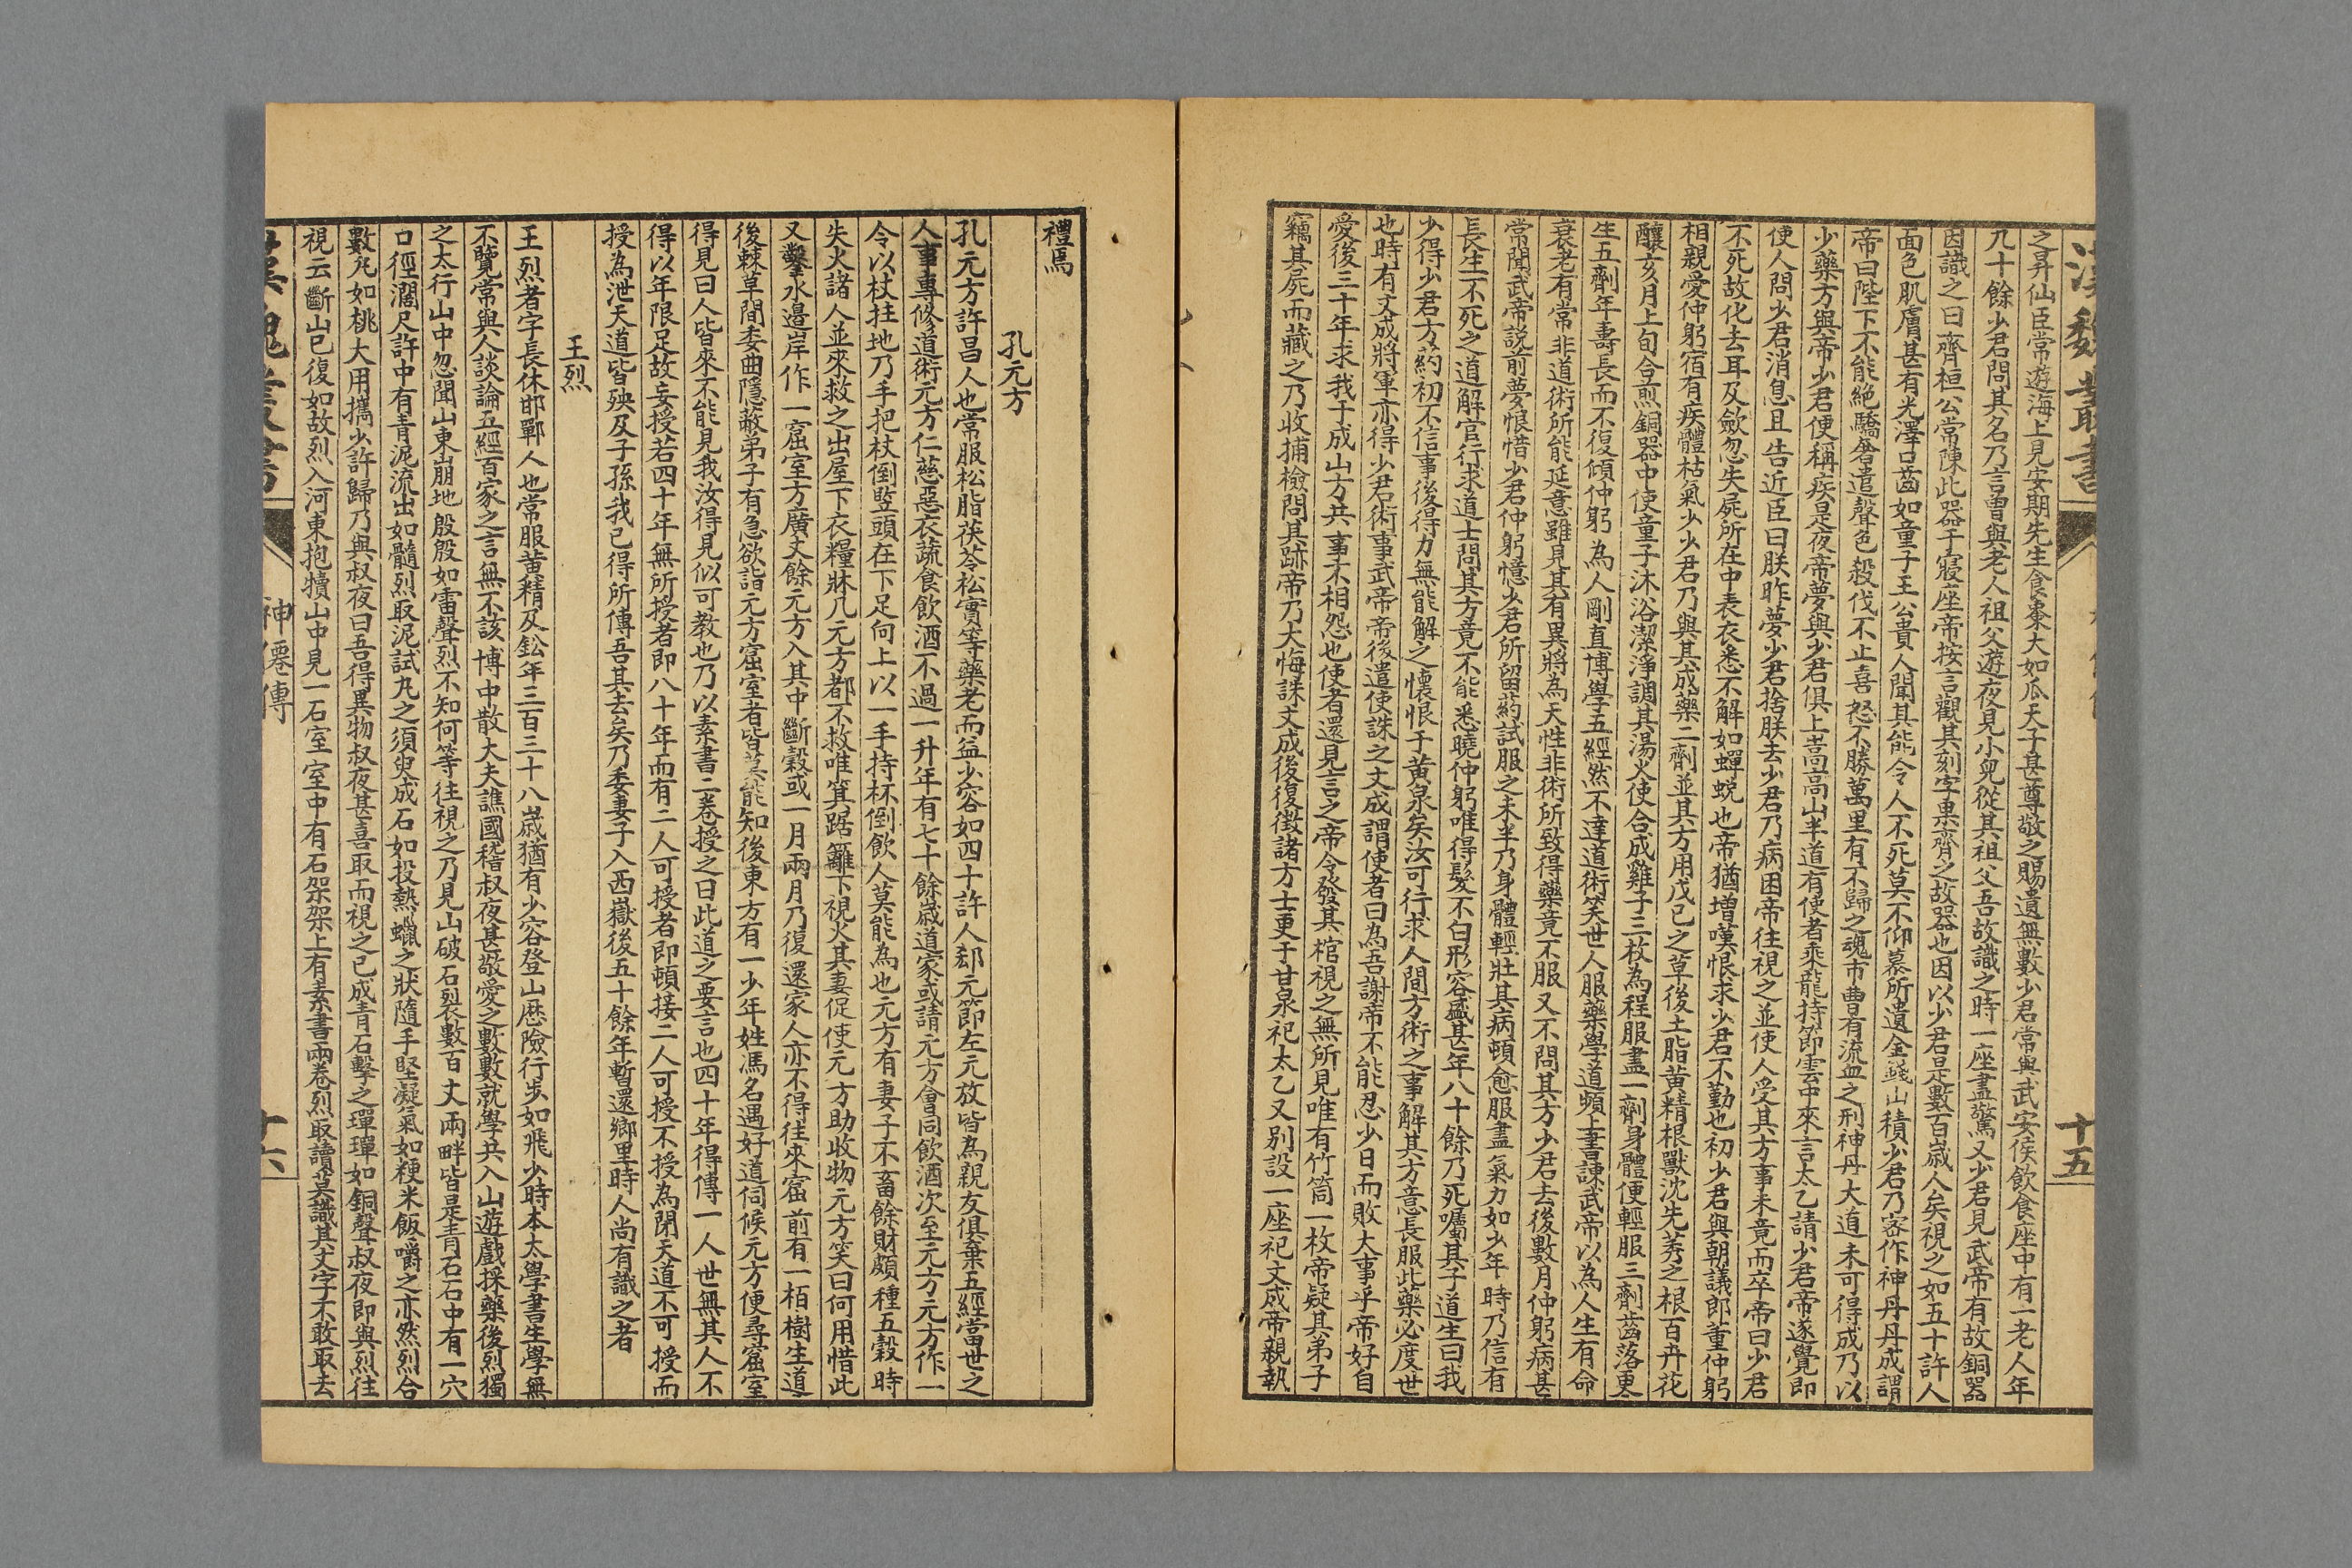 漢魏叢書
十五
之昇仙臣常遊海上見安期先生食棗大如瓜天子甚尊敬之賜遺無數少君常與武安侯飲食座中有一老人年
九十餘少君問其名乃言曾與老人祖父遊夜見小兒從其祖父吾故識之時一座盡驚又少君見武帝有故銅器
因識之曰齊桓公常陳此器于寢座帝按言觀其刻字果齊之故器也因以少君是數百歲人矣視之如五十許人
面色肌膚甚有光澤口齒如童子王公貴人聞其能令人不死莫不仰慕所遺金錢山積少君乃密作神丹丹成謂
帝曰陛下不能絶驕奢遣聲色殺伐不止喜怒不勝萬里有不歸之魂市曹有流血之刑神丹大道未可得成乃以
少藥方與帝少君便稱疾是夜帝夢與少君俱上嵩高山半道有使者乘龍持節雲中來言太乙請少君帝遂覺即
使人問少君消息且告近臣曰朕昨夢少君捨朕去少君乃病困帝往視之並使人受其方事未竟而卒帝曰少君
不死故化去耳及歛忽失屍所在中表衣悉不解如蟬蛻也帝猶增嘆恨求少君不勤也初少君與朝議郎董仲躬
相親愛仲躬宿有疾體枯氣少少君乃與其成藥二劑並其方用戊已之草後土脂黄精根獸沈先莠之根百卉花
釀亥月上旬合煎銅器中使童子沐浴潔淨調其湯火使合成雞子三枚為程服盡一劑身體便輕服三劑齒落更
生五劑年壽長而不復傾仲躬為人剛直博學五經然不達道術笑世人服藥學道頻上書諫武帝以為人生有命
衰老有常非道術所能延意雖見其有異將為天性非術所致得藥竟不服又不問其方少君去後數月仲躬病甚
常聞武帝説前夢恨惜少君仲躬憶少君所留药試服之未半乃身體輕壯其病頓愈服盡氣力如少年時乃信有
長生不死之道解官行求道士問其方竟不能悉曉仲躬唯得髮不白形容盛甚年八十餘乃死囑其子道生曰我
少得少君方药初不信事後得力無能解之懷恨于黄泉矣汝可行求人間方術之事解其方意長服此藥必度世
也時有文成將軍亦得少君術事武帝帝後遣使誅之文成謂使者曰為吾謝帝不能忍少日而敗大事乎帝好自
愛後三十年求我于成山方共事不相怨也使者還見言之帝令發其棺視之無所見唯有竹筒一枚帝疑其弟子
竊其屍而藏之乃收捕檢問其跡帝乃大悔誅文成後復徵諸方士更于甘泉祀太乙又别設一座祀文成帝親執
禮焉
孔元方
孔元方許昌人也常服松脂茯苓松實等藥老而益少容如四十許人郄元節左元放皆為親友俱棄五經當世之
人事專修道術元方仁慈惡衣蔬食飲酒不過一升年有七十餘歲道家或請元方會同飲酒次至元方元方作一
令以杖拄地乃手把杖倒竪頭在下足向上以一手持杯倒飲人莫能為也元方有妻子不畜餘財頗種五穀時
失火諸人並來救之出屋下衣糧牀几元方都不救唯箕踞籬下視火其妻促使元方助收物元方笑曰何用惜此
又鑿水邊岸作一窟室方廣丈餘元方入其中斷穀或一月兩月乃復還家人亦不得往來窟前有一栢樹生道
後棘草間委曲隱蔽弟子有急欲詣元方窟室者皆莫能知後東方有一少年姓馮名遇好道伺候元方便尋窟室
得見曰人皆來不能見我汝得見似可教也乃以素書二卷授之曰此道之要言也四十年得傳一人世無其人不
得以年限足故妄授若四十年無所授者即八十年而有二人可授者即頓接二人可授不授為閉天道不可授而
授為泄天道皆殃及子孫我已得所傳吾其去矣乃委妻子入西嶽後五十餘年暫還鄉里時人尚有識之者
王烈
王烈者字長休邯鄲人也常服黄精及鈆年三百三十八歲猶有少容登山歷險行步如飛少時本太學書生學無
不覽常與人談論五經百家之言無不該博中散大夫譙國稽叔夜甚敬愛之數數就學共入山遊戲採藥後烈獨
之太行山中忽聞山東崩地殷殷如雷聲烈不知何等往視之乃見山破石裂數百丈兩畔皆是青石石中有一穴
口徑濶尺許中有青泥流出如髓烈取泥試丸之須臾成石如投熱蠟之狀隨手堅凝氣如粳米飯嚼之亦然烈合
數丸如桃大用攜少許歸乃與叔夜曰吾得異物叔夜甚喜取而視之已成青石擊之琿琿如銅聲叔夜即與烈往
視云斷山已復如故烈入河東抱犢山中見一石室室中有石架架上有素書兩卷烈取讀莫識其文字不敢取去
漢魏叢書
神僊傳
十六